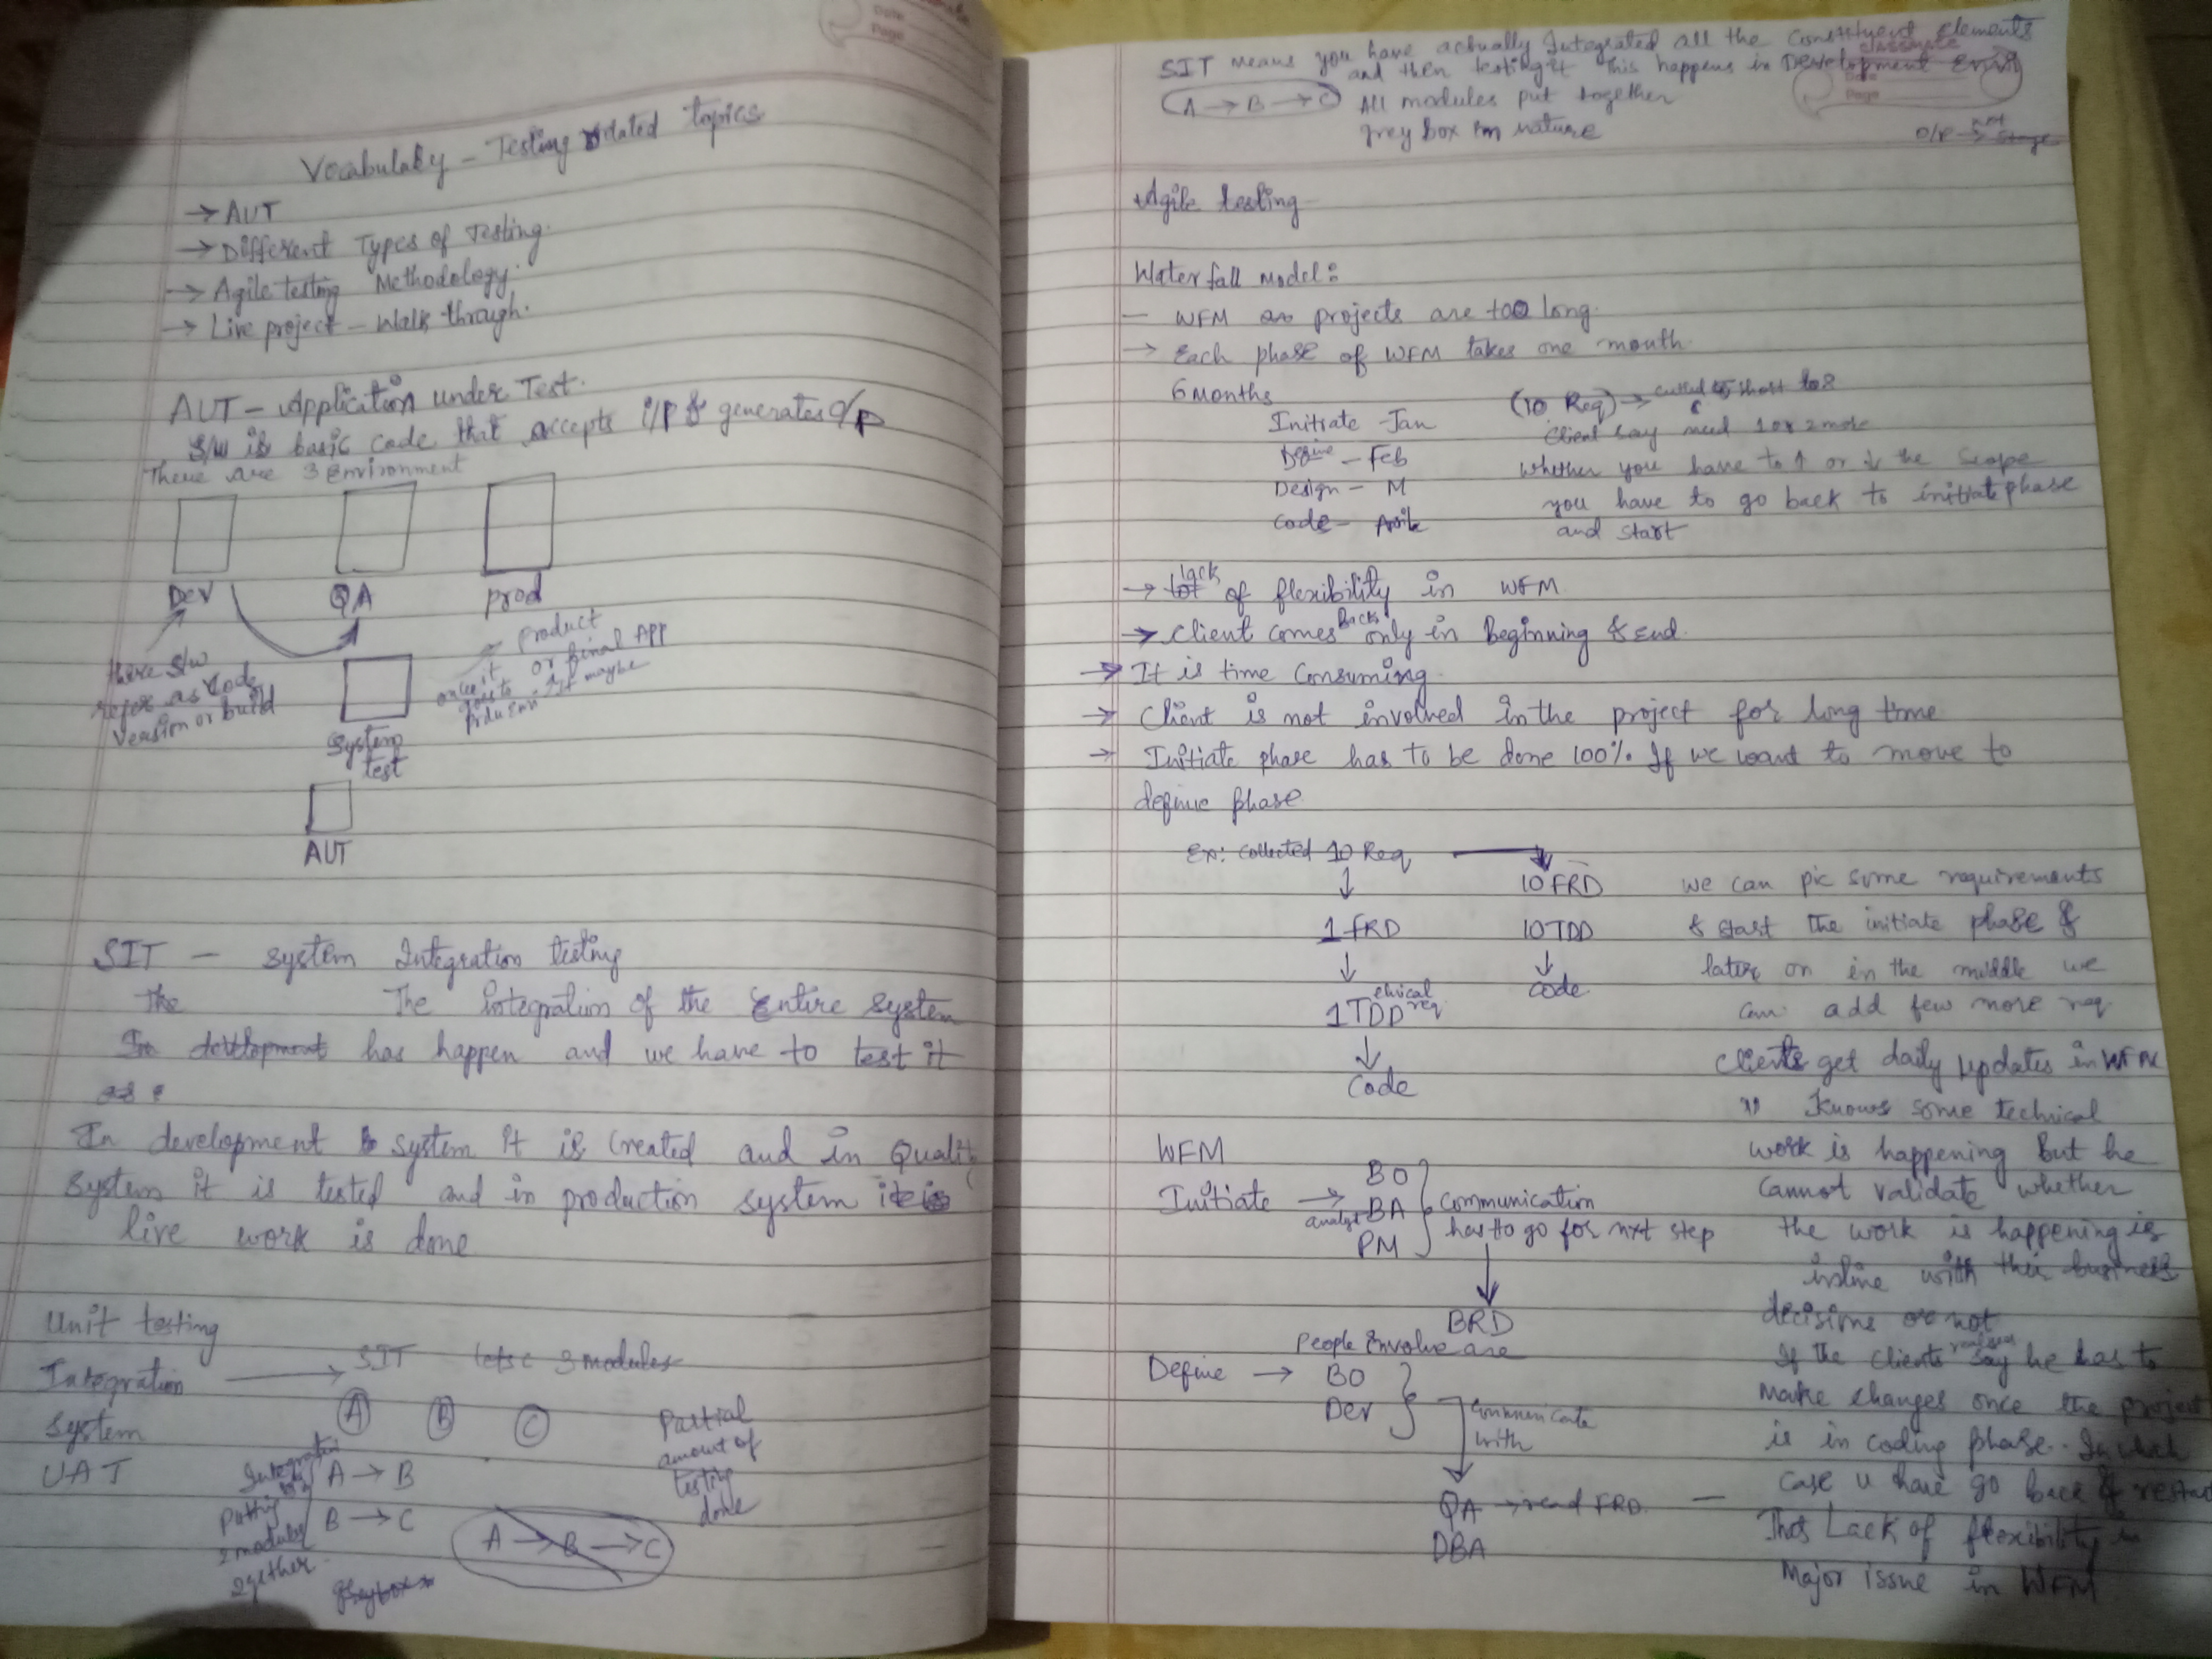 Date
Page
Vocabulary - Testing related topics
→ AUT
→ Different Types of Testing.
→ Agile testing Methodology.
→ Live project - Walk through.
AUT - Application under Test.
S/W is basic code that accepts i/p & generates o/p
There are 3 Environment
Dev QA prod
there S/w
refer as Code
version or build
once it
goes to
produ Env.
product
or final APP
it maybe
System
test
AUT
SIT - System Integration testing
The The integration of the Entire system
In development has happen and we have to test it
In development system it is created and in Quality
system it is tested and in production system it is
live work is done
Unit testing
Integration → SIT 3 modules
System A B C
UAT
Integration
putting
2 modules
2gether
A → B
B → C
A → B → C
Partial
amount of
testing
done
greybox
SIT means you have actually Integrated all the constituent elements
and then testing it This happens in Development Env
A → B → C All modules put together
grey box in nature
classmate
Date
Page
O/P → not
stage
Agile testing
Waterfall Model:
- WFM as projects are too long.
→ Each phase of WFM takes one month
6 Months
Initiate - Jan
Define - Feb
Design - M
Code - April
(10 Req) →
Client say need 1 or 2 more
Whether you have to ↑ or ↓ the scope
you have to go back to initiate phase
and start
→ lot lack of flexibility in WFM
→ Client comes Back only in Beginning & End.
→ It is time Consuming
→ Client is not involved in the project for long time
→ Initiate phase has to be done 100%. If we want to move to
define phase
Ex: Collected 10 Req → 10 FRD
↓
1 FRD 10 TDD
↓ ↓
1 TDD echnical req code
↓
Code
we can pic some requirements
& start the initiate phase &
later on in the middle we
can add few more req
Clients get daily updates in WFM
" Knows some technical
work is happening But he
cannot validate whether
the work is happening is
inline with their business
decisions or not
If the clients say he has to
make changes once the project
is in coding phase. In which
case u have go back & restart
Thos Lack of flexibility is
Major issue in WFM
WFM
Initiate → BO
analyst BA
PM
communication
has to go for nxt step
↓
BRD
People Involve are
Define → BO
Dev
communicate
with
↓
QA → read FRD. -
DBA